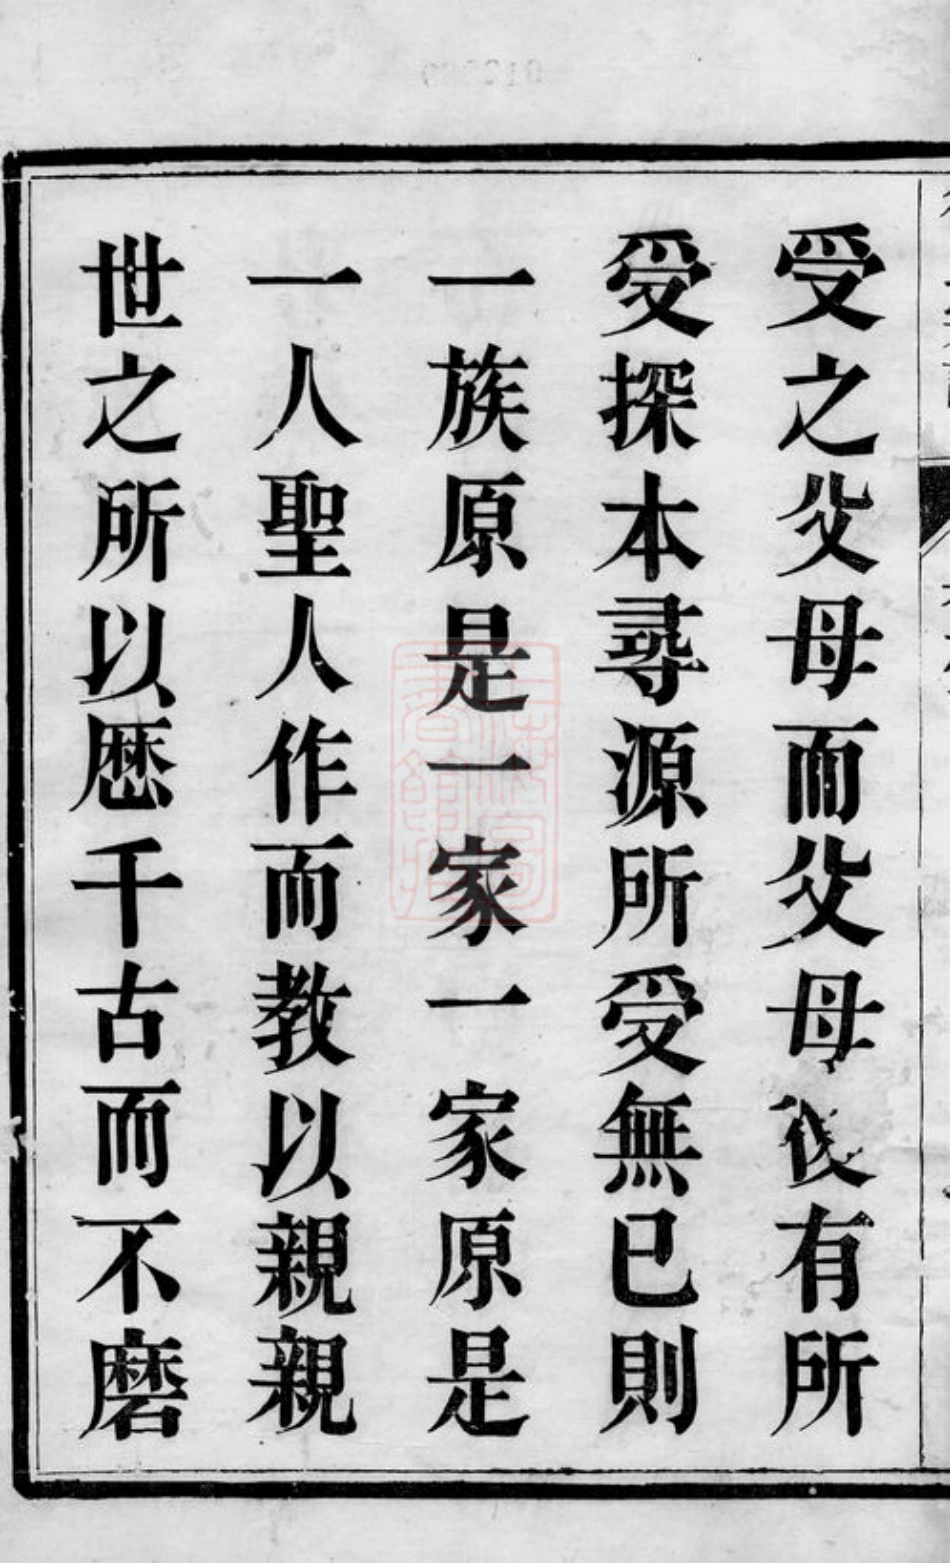 受之父母而父母又有所
受探本尋源所受無已則
一族原是一家一家原是
一人聖人作而教以親親
世之所以歴千古而不磨